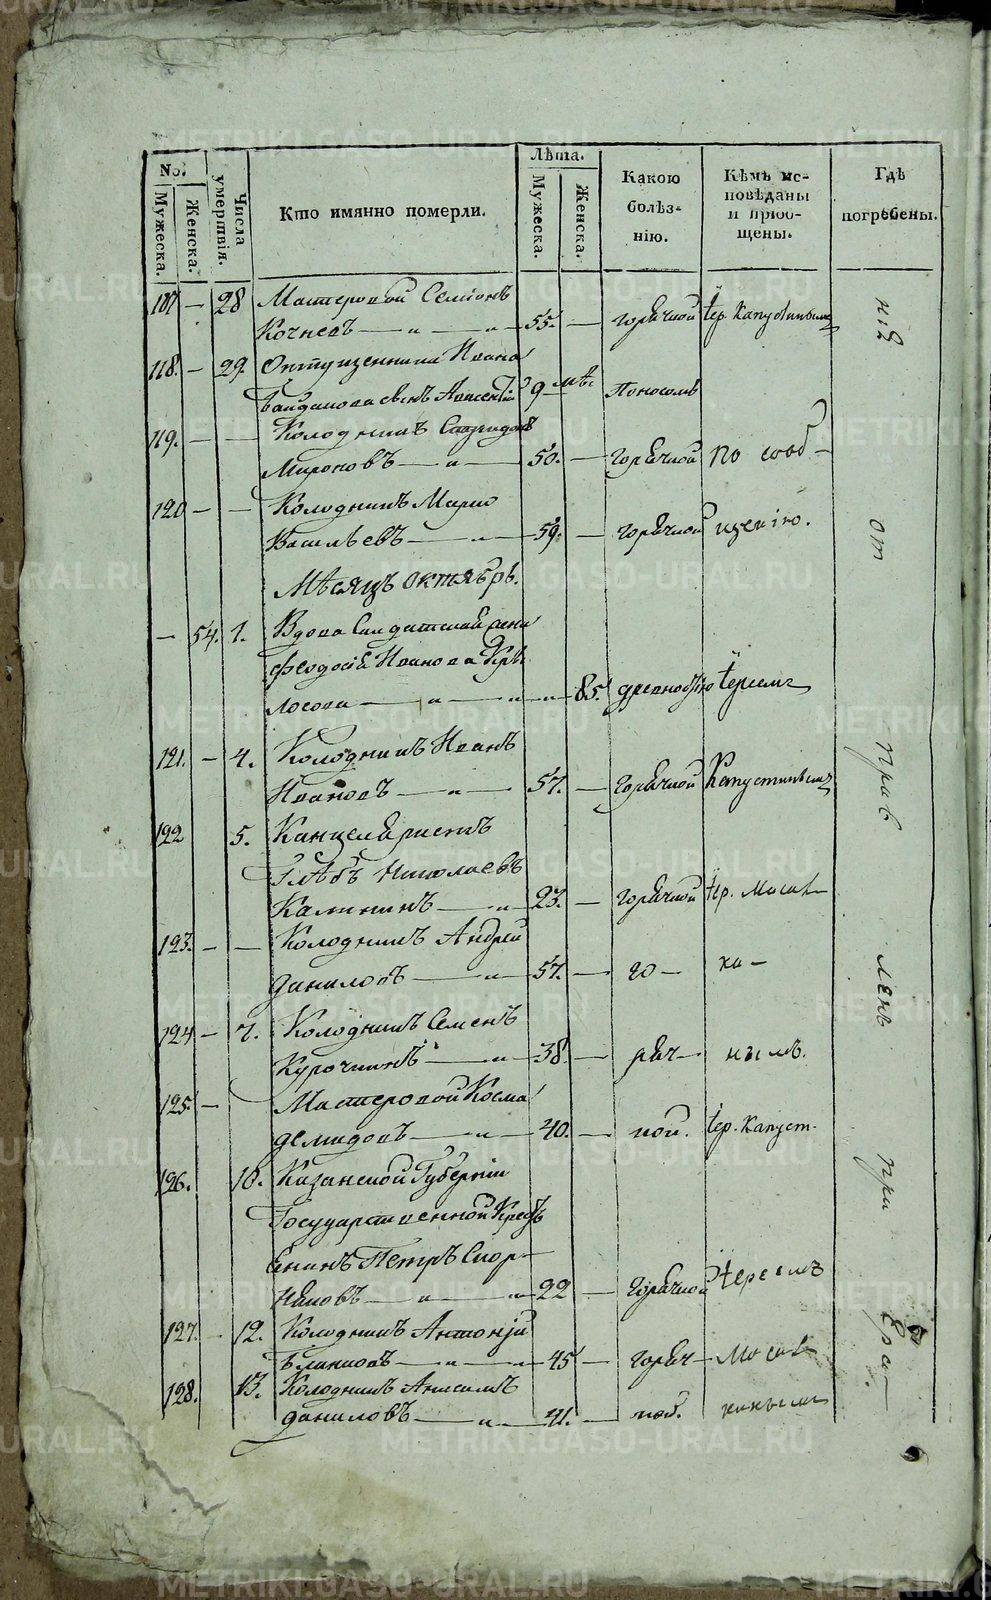 No.
Мужеска.
Женска.
Числа умертвія.
Кто имянно померли.
Лѣта.
Мужеска.
Женска.
Какою
болѣз-
нію.
Кѣмъ ис-
повѣданы
и пріоб-
щены.
Гдѣ
погребены.
117 — 28 Мастеровой Семіонъ
Кочневъ — 55. — горячкой Іер. Капустинымъ
118. — 29. Ивана
сынъ 9 мѣс. Поносомъ
119. — — Колодникъ Спиридонъ
Мироновъ — 50. — горячкой по сооб-
120 — — Колодникъ Марко
Васильевъ — 59. — горячкой щенію.
Мѣсяцъ Октябрь.
— 54. 1. Вдова Салдатская жена
Феодосія Иванова
лосова — 85. древностію Іереемъ
121. — 4. Колодникъ Иванъ
Ивановъ — 57. — горячкой Капустинымъ
122 5. Канцеляристъ
Глѣбъ Николаевъ
Калининъ — 23. — горячкой Іер.
123. — — Колодникъ Андрей
Даниловъ — 57. — го — ка —
124 — 7. Колодникъ Семенъ
Курочкинъ — 38. — ряч — нымъ.
125. — Мастеровой Косма
Демидовъ — 40. — кой. Іер. Капуст.
126. 10. Казанской Губерніи
Государственной Крестья
нинъ Петръ
— 22 — Горячкой Іереемъ
127. — 12. Колодникъ Антоній
— 45 — горяч —
128. 13. Колодникъ Анисимъ
Даниловъ — 41. — кой.
нія
от
прав
ленъ
при
METRIKI.GASO-URAL.RU